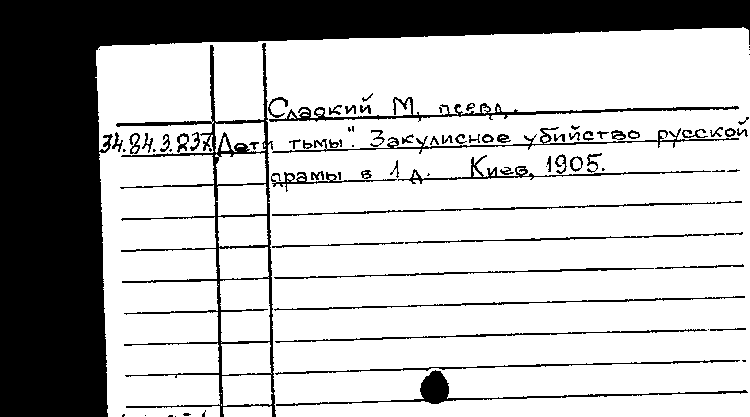 Сладкий, М, псевд.
34.84.3.237 „Дети тьмы". Закулисное убийство русской
драмы в 1 д. Киев, 1905.